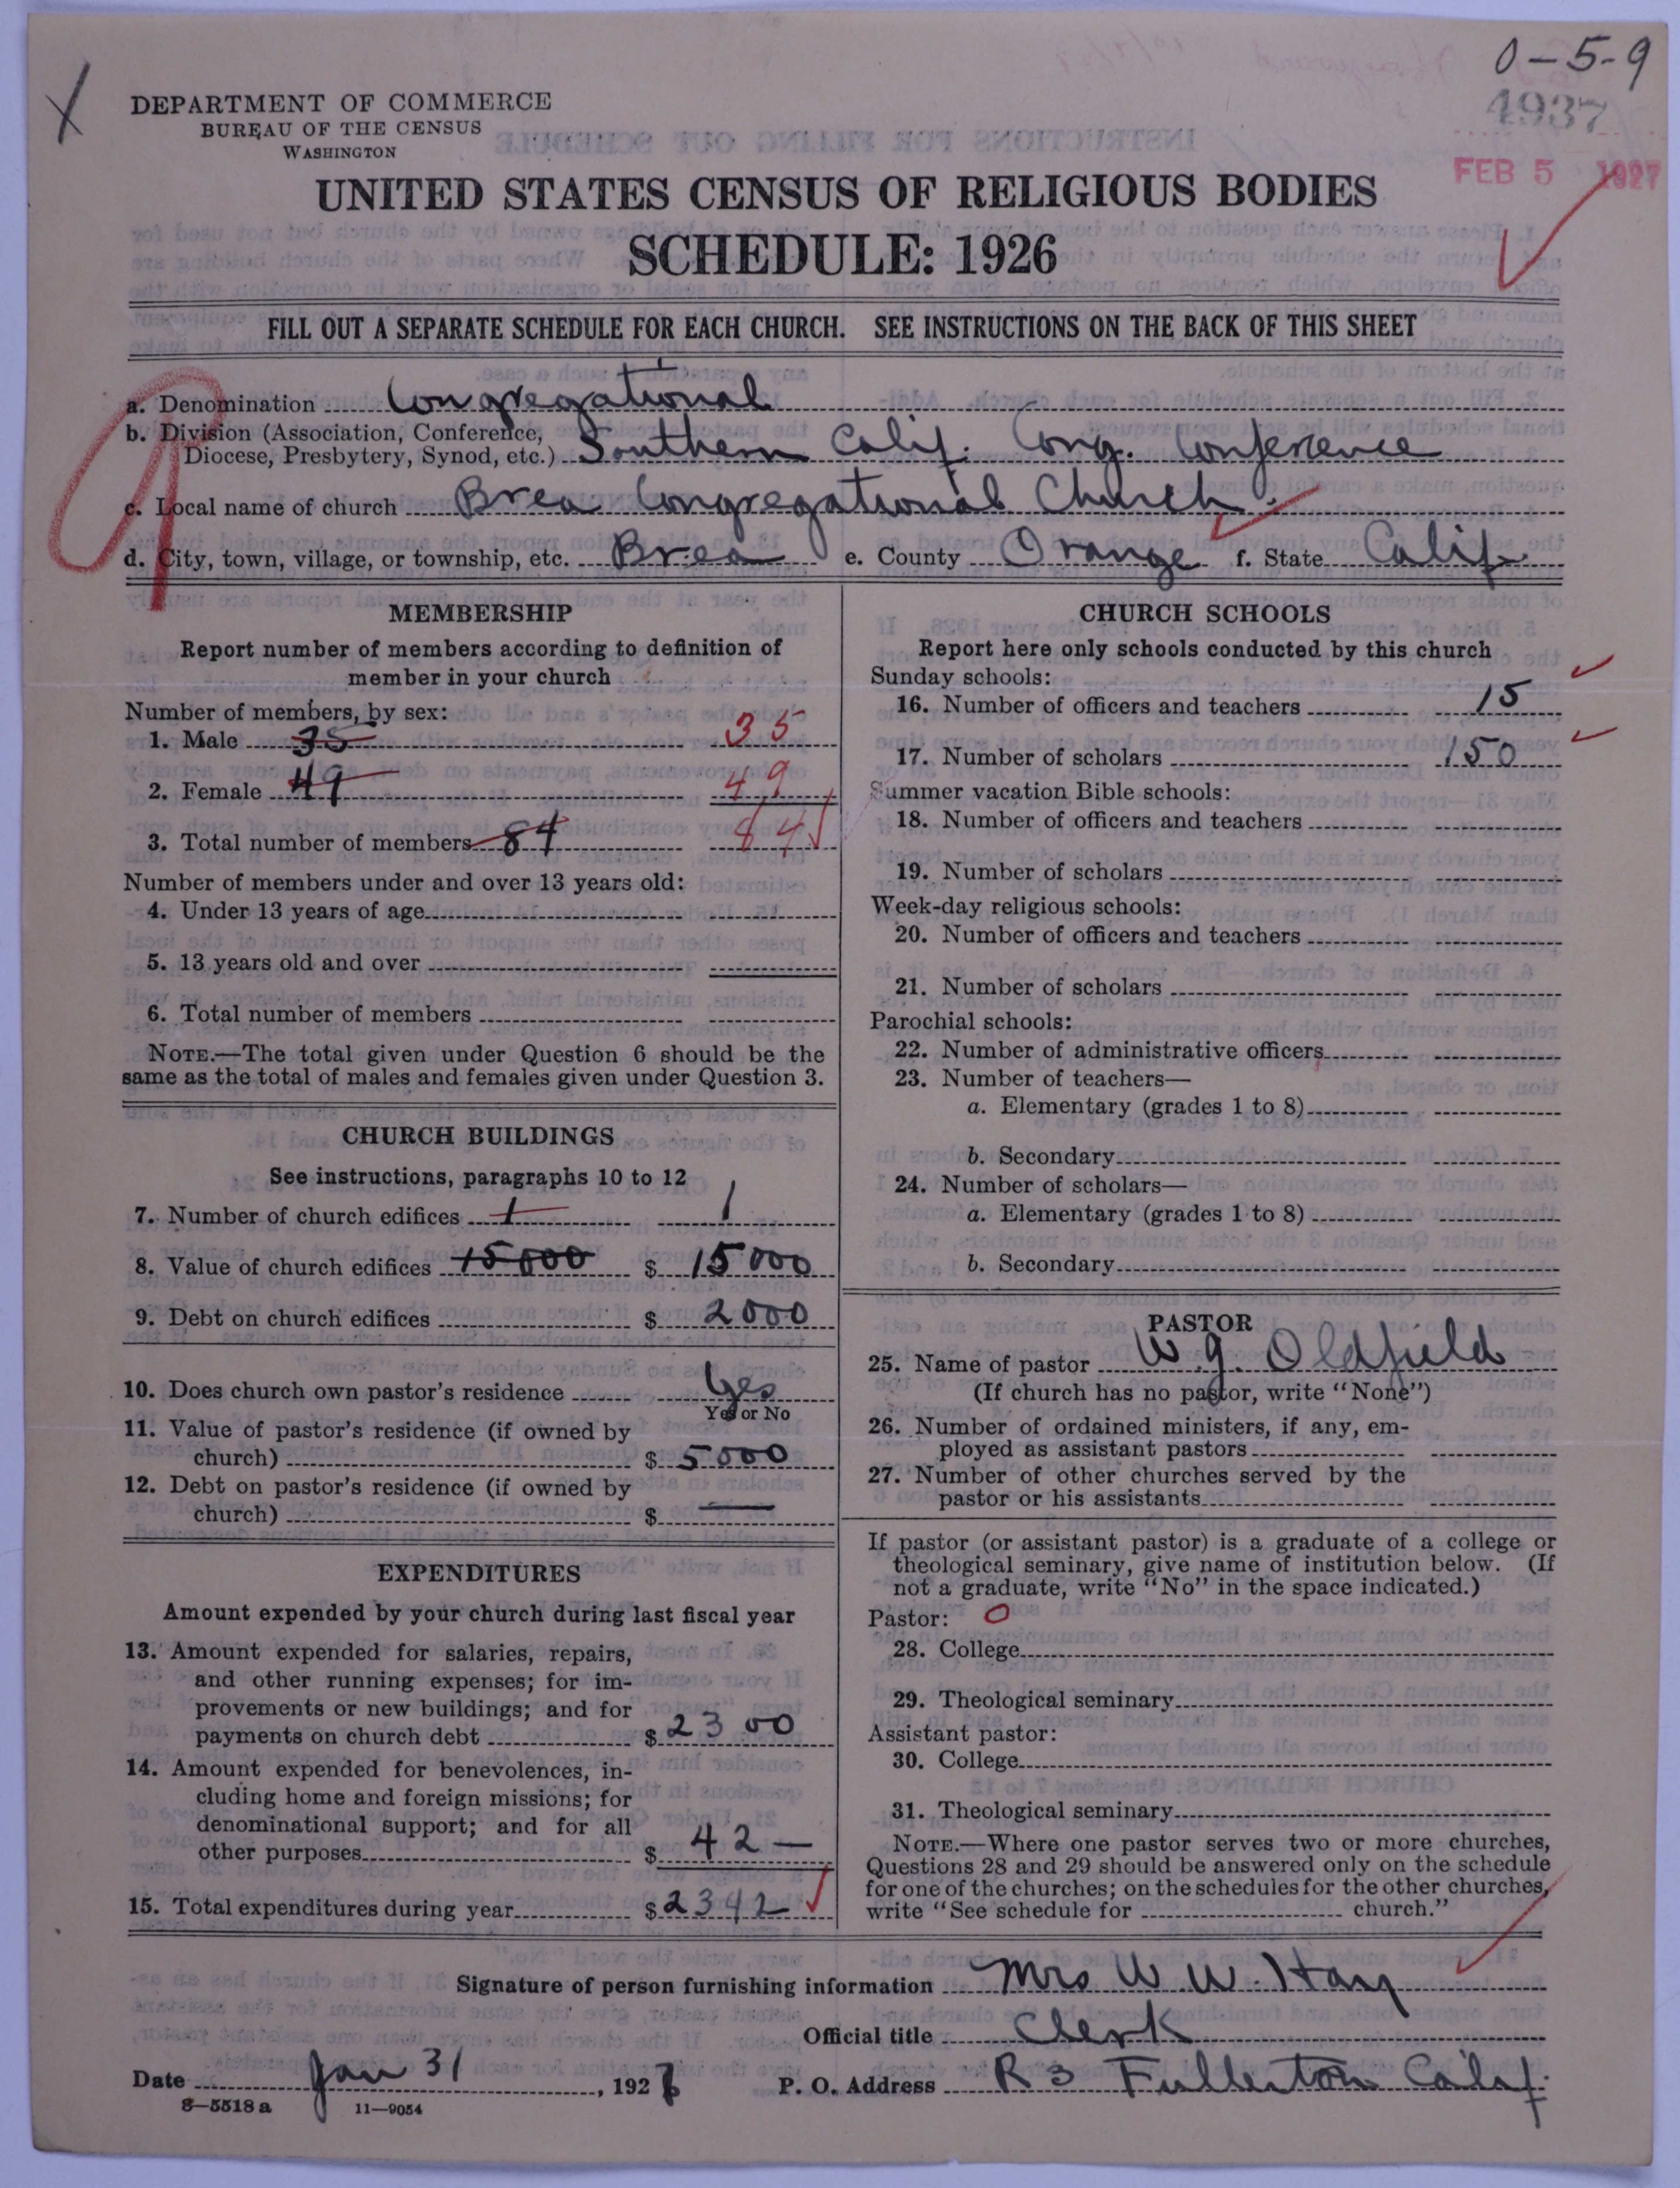 0-5-9
4937
FEB 5 1927
X
DEPARTMENT OF COMMERCE
BUREAU OF THE CENSUS
WASHINGTON
UNITED STATES CENSUS OF RELIGIOUS BODIES
SCHEDULE: 1926
FILL OUT A SEPARATE SCHEDULE FOR EACH CHURCH. SEE INSTRUCTIONS ON THE BACK OF THIS SHEET
a. Denomination Congregational
b. Division (Association, Conference,
Diocese, Presbytery, Synod, etc.) Southern Calif. Cong. Conference
c. Local name of church Brea Congregational Church
d. City, town, village, or township, etc. Brea e. County Orange f. State Calif
MEMBERSHIP
Report number of members according to definition of
member in your church
Number of members, by sex:
1. Male 35 35
2. Female 49 49
3. Total number of members 84 84
Number of members under and over 13 years old:
4. Under 13 years of age
5. 13 years old and over
6. Total number of members
NOTE.—The total given under Question 6 should be the
same as the total of males and females given under Question 3.
CHURCH BUILDINGS
See instructions, paragraphs 10 to 12
7. Number of church edifices 1 1
8. Value of church edifices 15000 $ 15000
9. Debt on church edifices $ 2000
10. Does church own pastor's residence Yes
Yes or No
11. Value of pastor's residence (if owned by
church) $ 5000
12. Debt on pastor's residence (if owned by
church) $ —
EXPENDITURES
Amount expended by your church during last fiscal year
13. Amount expended for salaries, repairs,
and other running expenses; for im-
provements or new buildings; and for
payments on church debt $ 2300
14. Amount expended for benevolences, in-
cluding home and foreign missions; for
denominational support; and for all
other purposes $ 42 —
15. Total expenditures during year $ 2342
CHURCH SCHOOLS
Report here only schools conducted by this church
Sunday schools:
16. Number of officers and teachers 15
17. Number of scholars 150
Summer vacation Bible schools:
18. Number of officers and teachers
19. Number of scholars
Week-day religious schools:
20. Number of officers and teachers
21. Number of scholars
Parochial schools:
22. Number of administrative officers
23. Number of teachers—
a. Elementary (grades 1 to 8)
b. Secondary
24. Number of scholars—
a. Elementary (grades 1 to 8)
b. Secondary
PASTOR
25. Name of pastor W. G. Oldfield
(If church has no pastor, write "None")
26. Number of ordained ministers, if any, em-
ployed as assistant pastors
27. Number of other churches served by the
pastor or his assistants
If pastor (or assistant pastor) is a graduate of a college or
theological seminary, give name of institution below. (If
not a graduate, write "No" in the space indicated.)
Pastor: O
28. College
29. Theological seminary
Assistant pastor:
30. College
31. Theological seminary
NOTE.—Where one pastor serves two or more churches,
Questions 28 and 29 should be answered only on the schedule
for one of the churches; on the schedules for the other churches,
write "See schedule for church."
Signature of person furnishing information Mrs W. W. Hay
Official title Clerk
Date Jan 31, 1927 P. O. Address R 3 Fullerton Calif.
8—5518 a 11—9054